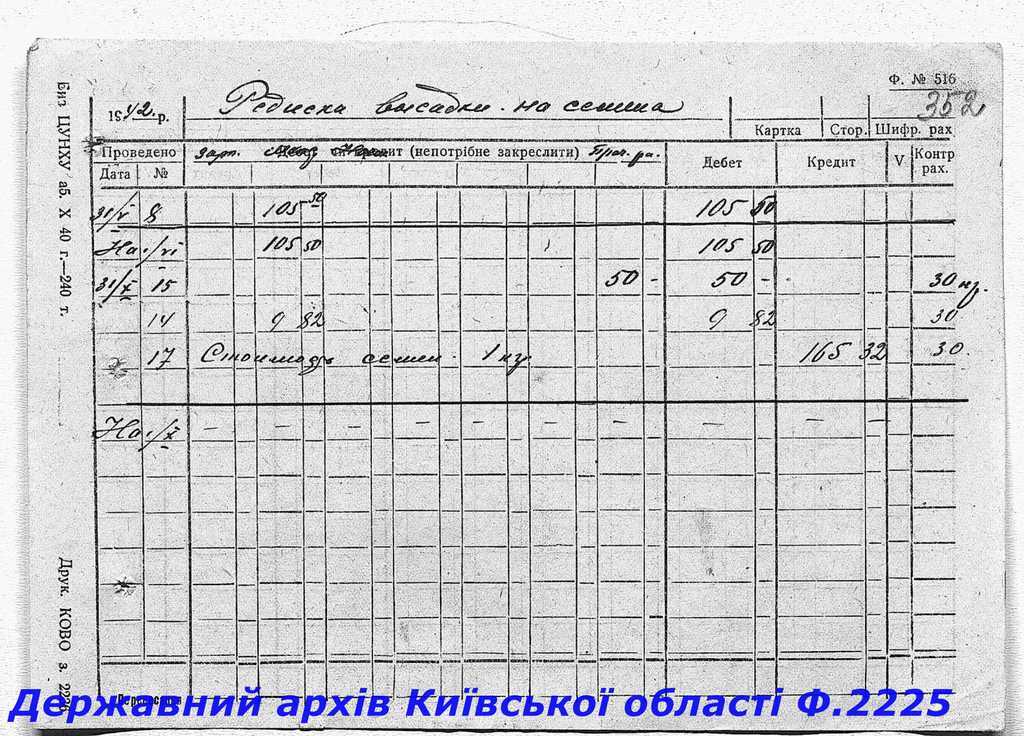 Ф. № 516
352
1942 р. Редиска высадки на семена
Картка Стор. Шифр. рах
Проведено Зарп. дит (непотрібне закреслити) Дебет Кредит V Контр рах.
Дата №
31/V 8 105 50 105 50
На 1/VI 105 50 105 50
31/X 15 50 - 50 - 30 кр.
14 9 82 9 82 30
17 Стоимость семен 1 кг 165 32 30.
На 1/X — — — — — — — — — —
Биз ЦУНХУ аб. X 40 г.—240 т.
Друк. КОВО з.
Державний архів Київської області Ф.2225